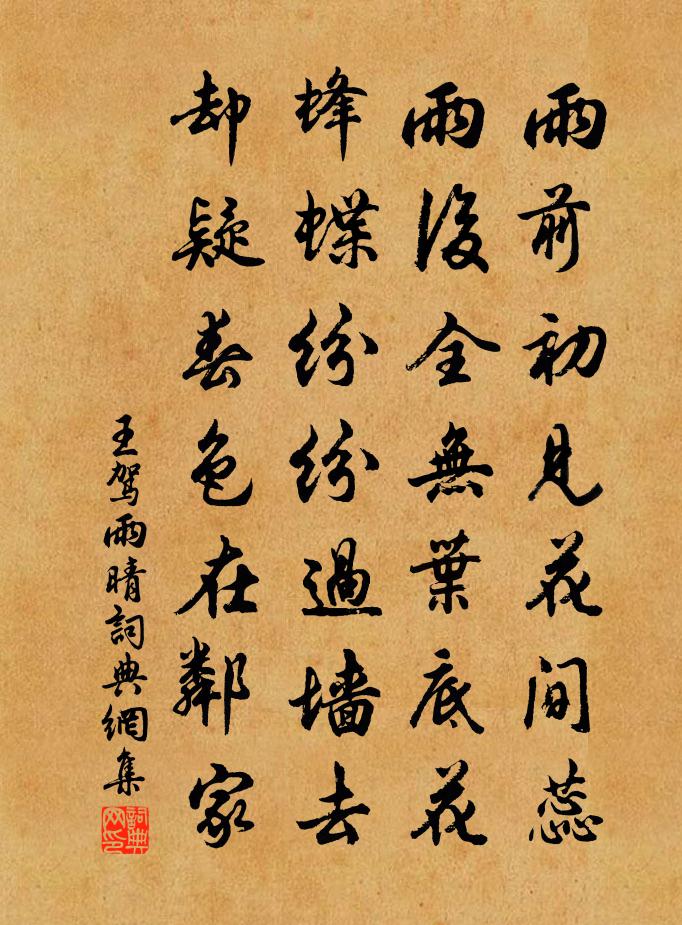 雨前初見花間蕊
雨後全無葉底花
蜂蝶紛紛過墻去
却疑春色在鄰家
王駕雨晴詞典網集
詞典网印